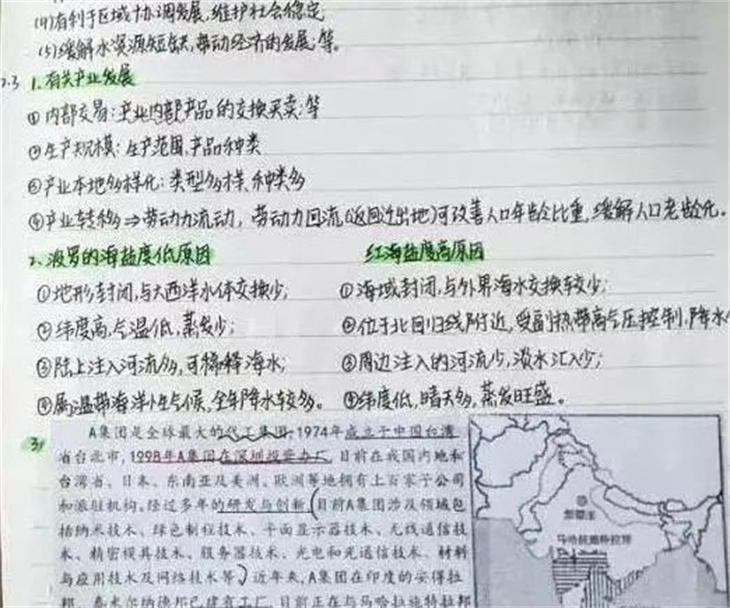 (4)有利于区域协调发展,维护社会稳定
(5)缓解水资源短缺,带动经济的发展,等。
2.3 1.有关产业发展
①内部交易:产业内部产品的交换买卖等
②生产规模:生产范围,产品种类
③产业本地多样化:类型多样,种类多
④产业转移⇒劳动力流动,劳动力回流(返回迁出地)可改善人口年龄比重,缓解人口老龄化。
2、波罗的海盐度低原因 红海盐度高原因
①地形封闭,与大西洋水体交换少; ①海域封闭,与外界海水交换较少;
②纬度高,气温低,蒸发少; ②位于北回归线附近,受副热带高气压控制,降水
③陆上注入河流多,可稀释海水; ③周边注入的河流少,淡水汇入少;
④属温带海洋性气候,全年降水较多。 ④纬度低,晴天多,蒸发旺盛。
3、 A集团是全球最大的代工集团,1974年成立于中国台湾
省台北市,1998年A集团在深圳投资办厂,目前在我国内地和
台湾省、日本、东南亚及美洲、欧洲等地拥有上百家子公司
和派驻机构。经过多年的研发与创新,(目前A集团涉及领域包
括纳米技术、绿色制程技术、平面显示器技术、无线通信技
术、精密模具技术、服务器技术、光电和光通信技术、材料
与应用技术及网络技术等)近年来,A集团在印度的安得拉
邦、泰米尔纳德邦已建有工厂,目前正在与马哈拉施特拉邦
孟买
马哈拉施特拉邦